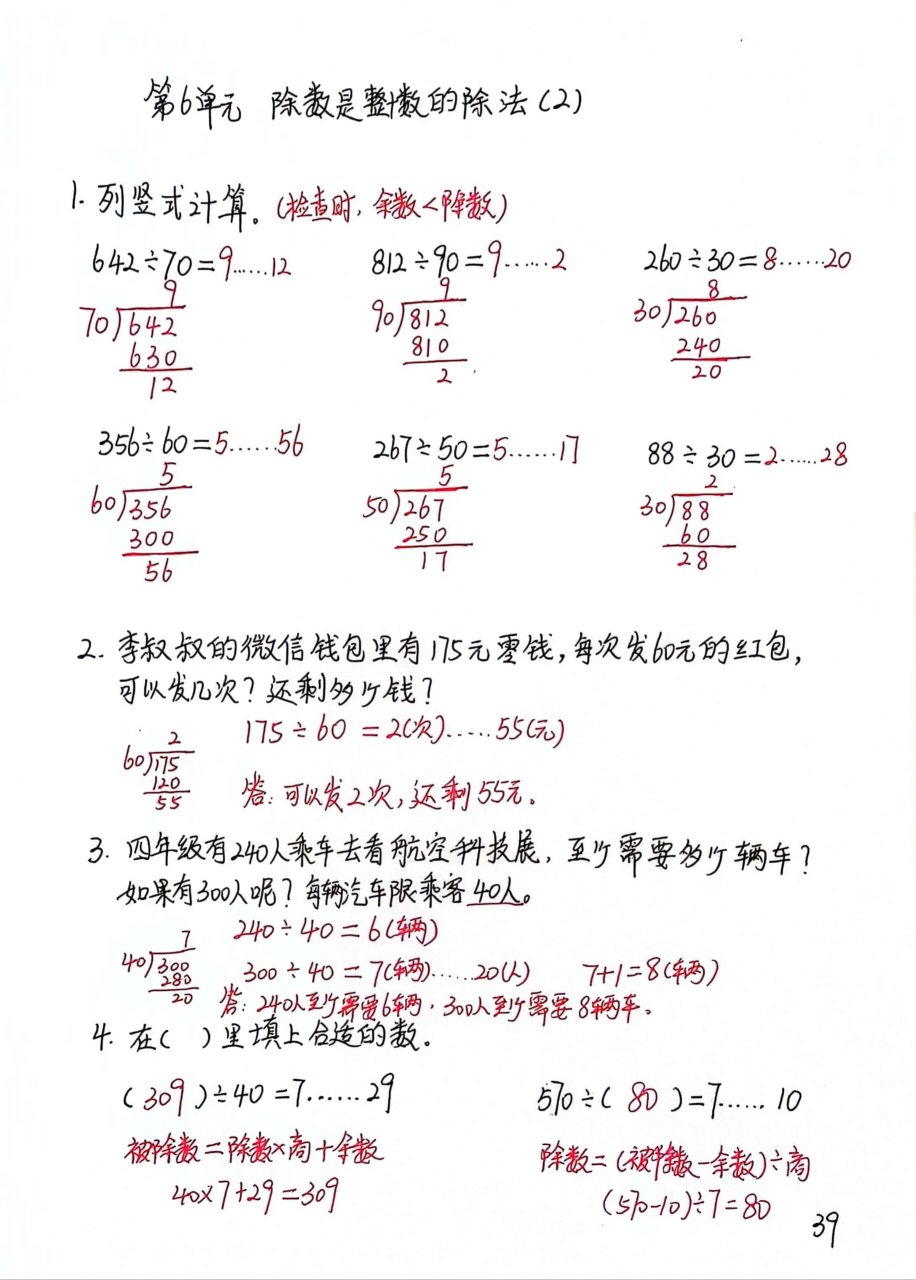 第6单元 除数是整十数的除法(2)
1. 列竖式计算。(检查时,余数<除数)
642÷70=9……12 812÷90=9……2 260÷30=8……20
9 9 8
70)642 90)812 30)260
630 810 240
12 2 20
356÷60=5……56 267÷50=5……17 88÷30=2……28
5 5 2
60)356 50)267 30)88
300 250 60
56 17 28
2. 李叔叔的微信钱包里有175元零钱,每次发60元的红包,
可以发几次?还剩多少钱?
175÷60=2(次)……55(元)
2
60)175
120
55
答:可以发2次,还剩55元。
3. 四年级有240人乘车去看航空科技展,至少需要多少辆车?
如果有300人呢?每辆汽车限乘客40人。
240÷40=6(辆)
7
40)300
280
20
300÷40=7(辆)……20(人) 7+1=8(辆)
答:240人至少需要6辆,300人至少需要8辆车。
4. 在( )里填上合适的数。
(309)÷40=7……29 570÷(80)=7……10
被除数=除数×商+余数 除数=(被除数-余数)÷商
40×7+29=309 (570-10)÷7=80
39